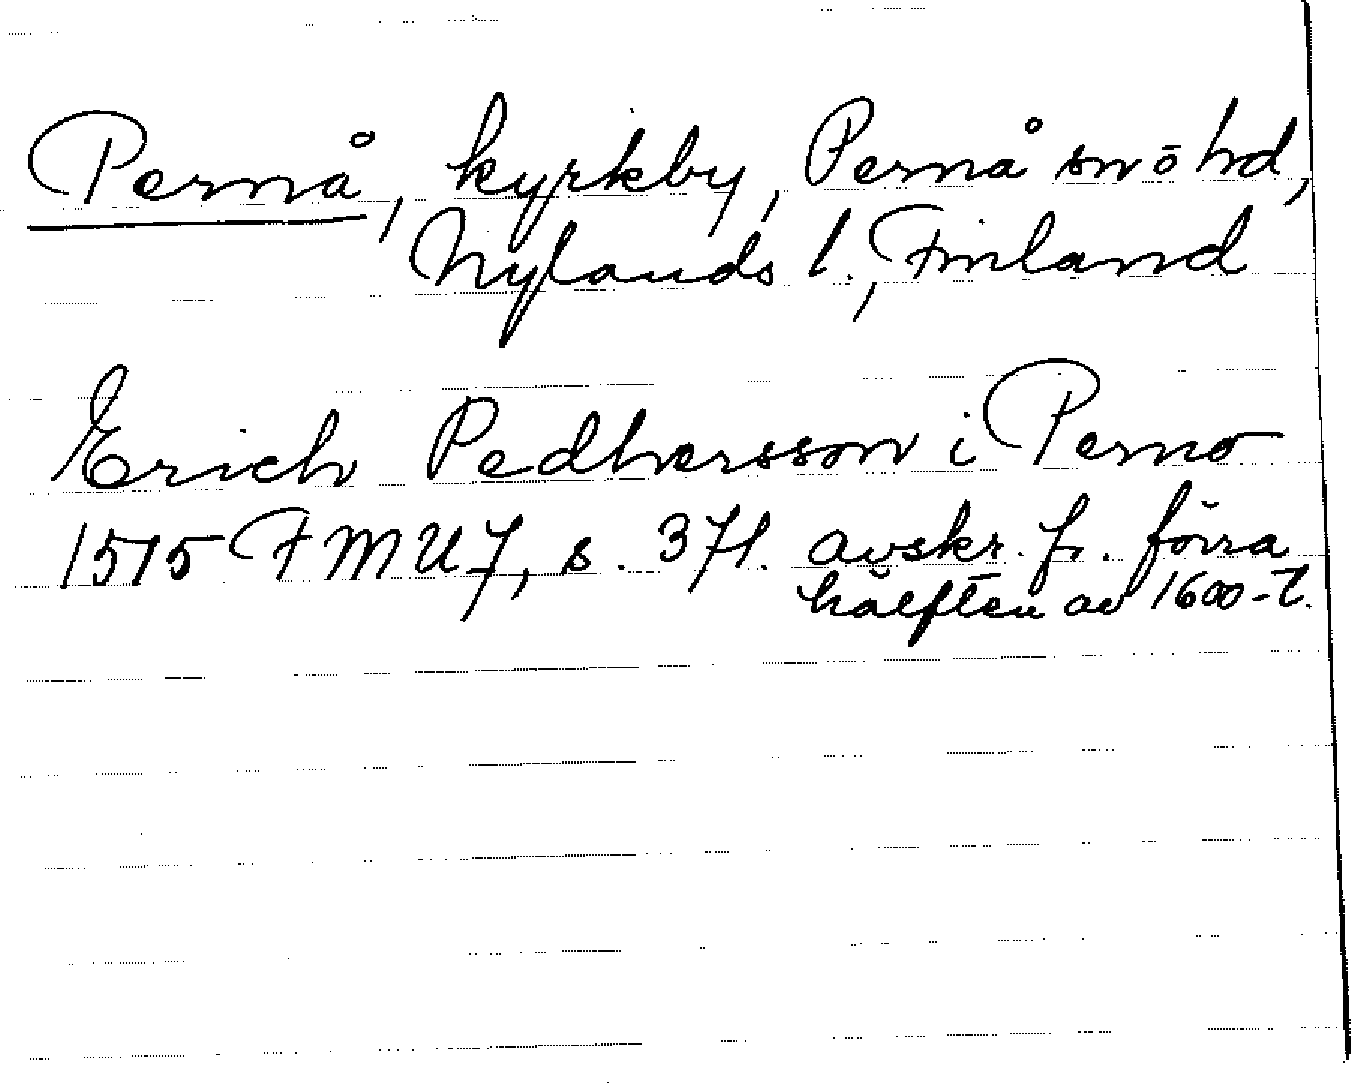 Pernå, kyrkby, Pernå sn o hd,
Nylands l., Finland
Erich Pedhersson i Perno
1515 FMU 7, s. 371. avskr. fr. förra
hälften av 1600-t.